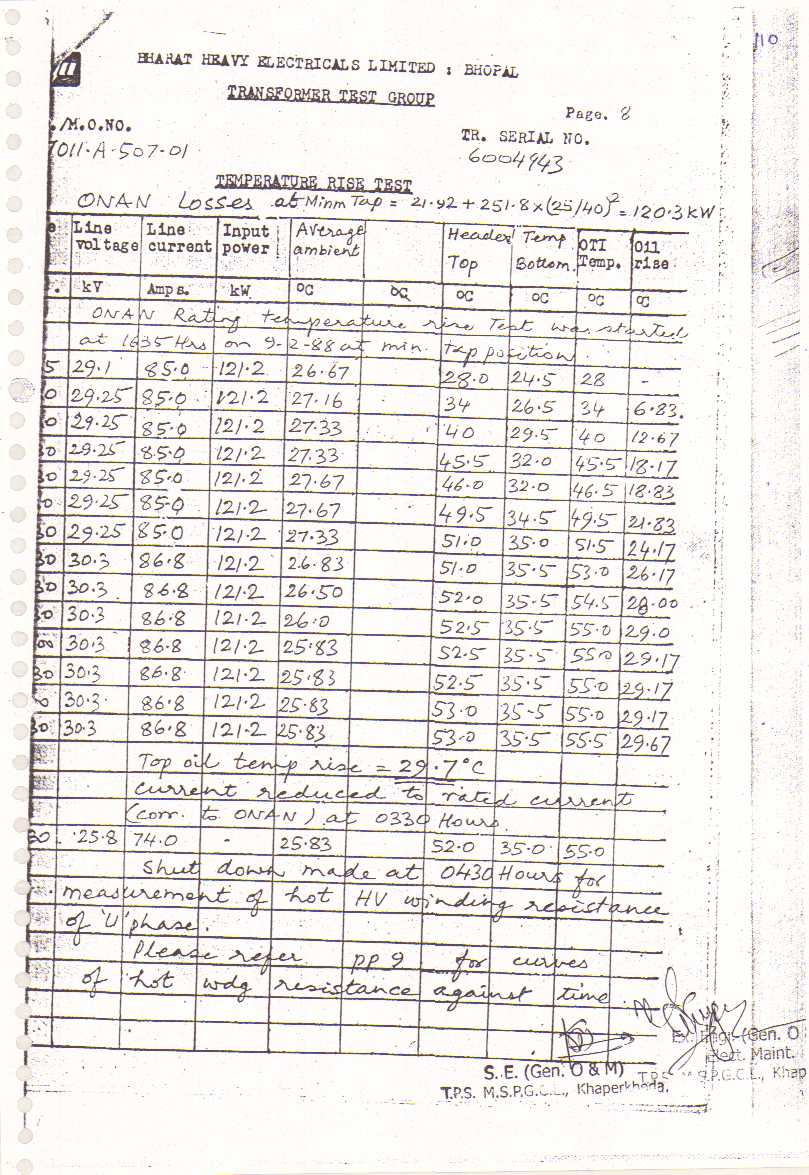 110
BHARAT HEAVY ELECTRICALS LIMITED : BHOPAL
TRANSFORMER TEST GROUP
Page. 8
/M.O.NO.
TR. SERIAL NO.
7011-A-507-01
6004943
TEMPERATURE RISE TEST
ONAN Losses at Minm Tap = 21.92 + 251.8 x (25/40)² = 120.3 kW
Line voltage Line current Input power Average ambient Header Temp Top Bottom. OTI Temp. Oil rise
kV Amps. kW OC OC OC OC OC OC
ONAN Rating temperature rise Test was started
at 1635 Hrs on 9-2-88 at min. Tap position
5 29.1 85.0 121.2 26.67 28.0 24.5 28 -
0 29.25 85.0 121.2 27.16 34 26.5 34 6.83.
0 29.25 85.0 121.2 27.33 40 29.5 40 12.67
30 29.25 85.0 121.2 27.33 45.5 32.0 45.5 18.17
30 29.25 85.0 121.2 27.67 46.0 32.0 46.5 18.83
0 29.25 85.0 121.2 27.67 49.5 34.5 49.5 21.83
30 29.25 85.0 121.2 27.33 51.0 35.0 51.5 24.17
30 30.3 86.8 121.2 26.83 51.0 35.5 53.0 26.17
30 30.3 86.8 121.2 26.50 52.0 35.5 54.5 28.00
30 30.3 86.8 121.2 26.0 52.5 35.5 55.0 29.0
00 30.3 86.8 121.2 25.83 52.5 35.5 55.0 29.17
30 30.3 86.8 121.2 25.83 52.5 35.5 55.0 29.17
0 30.3 86.8 121.2 25.83 53.0 35.5 55.0 29.17
30 30.3 86.8 121.2 25.83 53.0 35.5 55.5 29.67
Top oil temp rise = 29.7°C
current reduced to rated current
(corr. to ONAN) at 0330 Hours.
30 25.8 74.0 - 25.83 52.0 35.0 55.0
Shut down made at 0430 Hours for
measurement of hot HV winding resistance
of 'U' phase.
Please refer pp 9 for curves
of hot wdg resistance against time
Ex. Engr. (Gen. O
Elect. Maint.
S.E. (Gen. O & M)
T.P.S. M.S.P.G.C.L., Khap
T.P.S. M.S.P.G.C.L., Khaperkheda.